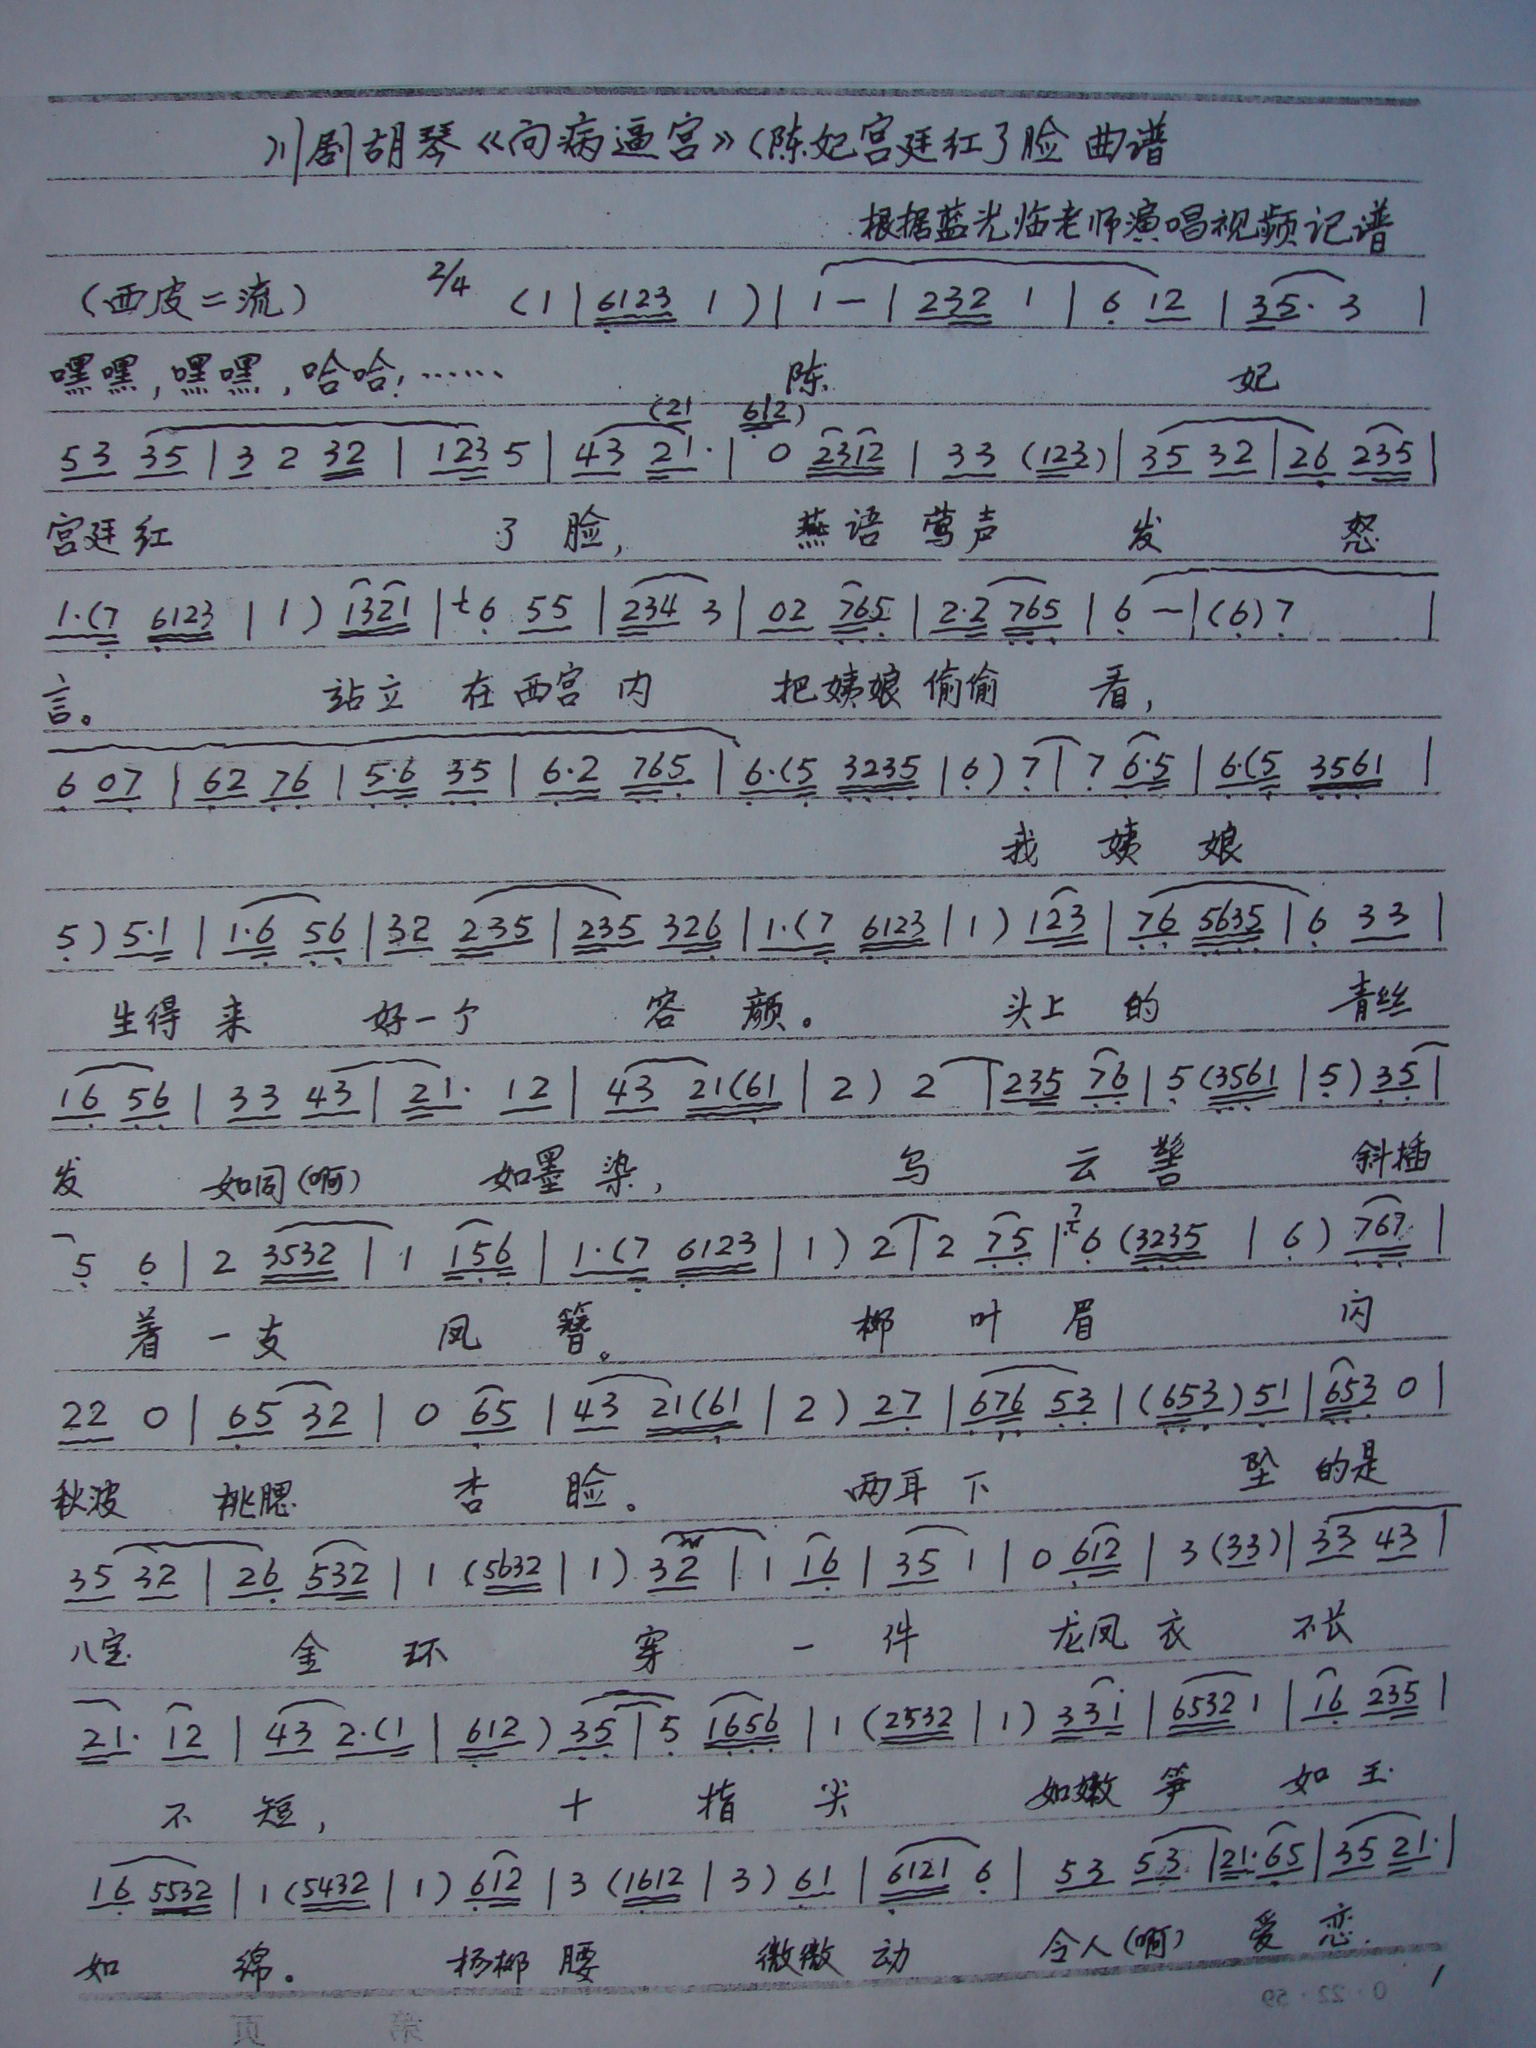 川剧胡琴《问病逼宫》(陈妃宫廷红了脸 曲谱
根据蓝光临老师演唱视频记谱
(西皮二流) 2/4 (1 | 6123 1 ) | 1 — | 232 1 | 6 12 | 35· 3 |
嘿嘿,嘿嘿,哈哈!…… 陈 妃
(21 612)
53 35 | 3 2 32 | 123 5 | 43 21· | 0 2312 | 33 (123) | 35 32 | 26 235 |
宫廷红 了 脸, 燕语莺声 发 怒
1·(7 6123 | 1 ) 1321 | 6 55 | 234 3 | 02 765 | 2·2 765 | 6 — | (6) 7 |
言。 站立 在西宫 内 把姨娘偷偷 看,
6 07 | 62 76 | 5·6 35 | 6·2 765 | 6·(5 3235 | 6 ) 7 | 7 6·5 | 6·(5 3561 |
我 姨 娘
5 ) 5·1 | 1·6 56 | 32 235 | 235 326 | 1·(7 6123 | 1 ) 123 | 76 5635 | 6 33 |
生得 来 好一个 容 颜。 头上 的 青丝
16 56 | 33 43 | 21· 12 | 43 21(61 | 2 ) 2 | 235 76 | 5 (3561 | 5 ) 35 |
发 如同(啊) 如墨 染, 乌 云 鬓 斜插
5 6 | 2 3532 | 1 156 | 1·(7 6123 | 1 ) 2 | 2 75 | 7 6 (3235 | 6 ) 767 |
着 一支 凤 簪。 柳 叶 眉 闪
22 0 | 65 32 | 0 65 | 43 21(61 | 2 ) 27 | 676 53 | (653) 51 | 653 0 |
秋波 桃腮 杏 脸。 两耳 下 坠 的是
35 32 | 26 532 | 1 (5632 | 1 ) 32 | 1 16 | 35 1 | 0 612 | 3 (33) | 33 43 |
八宝 金 环 穿 一 件 龙凤 衣 不长
21· 12 | 43 2·(1 | 612 ) 35 | 5 1656 | 1 (2532 | 1 ) 331 | 6532 1 | 16 235 |
不 短, 十 指 尖 如嫩 笋 如 玉
16 5532 | 1 (5432 | 1 ) 612 | 3 (1612 | 3 ) 61 | 6121 6 | 53 53 | 21·65 | 35 21· |
如 绵。 杨柳 腰 微微 动 令人(啊) 爱 恋.
1
0·22·59
第 页